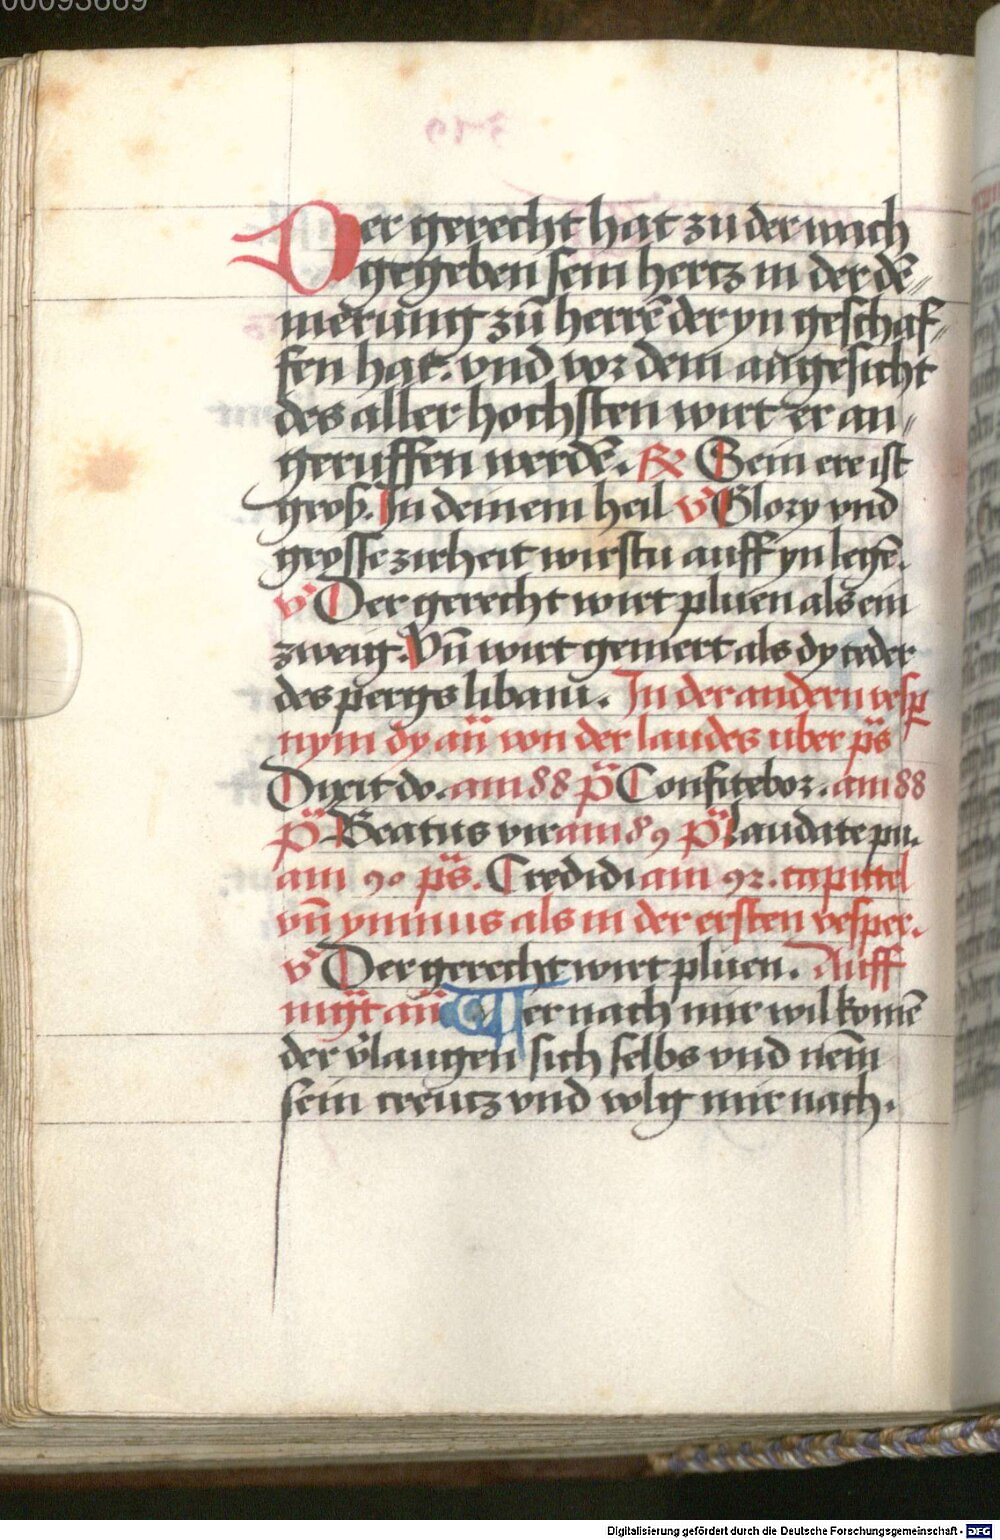 00093669
Der gerecht hat zu der wach
gegeben sein hertz in der dē⸗
merung zū herrē der yn geschaf⸗
fen hat. vnd vor dem angesicht
des aller hochsten wirt er an⸗
geruffen werdē. ℟ Sein ere ist
gros. In deinem heil v̓ Glory vnd
grosse zirheit wirstu auff yn legē.
v̓ Der gerecht wirt pluen als ein
zweig. Vn̄ wirt gemert als dy ceder
des pergs libani. In der andern vesp̲
nym dy an̄ von der laudes uber p̄s
Dixit do. am 88 p̄s Confitebor. am 88
p̄s Beatus vir am 89 p̄s laudate pu.
am 90 p̄s. Credidi am 92. capittel
vn̄ ymnus als in der ersten vesper.
v̓ Der gerecht wirt pluen. Auff
mgt an̄ Wer nach mir wil komē
der v̓laugen sich selbs vnd nem
sein creutz vnd volg mir nach.
Digitalisierung gefördert durch die Deutsche Forschungsgemeinschaft - DFG